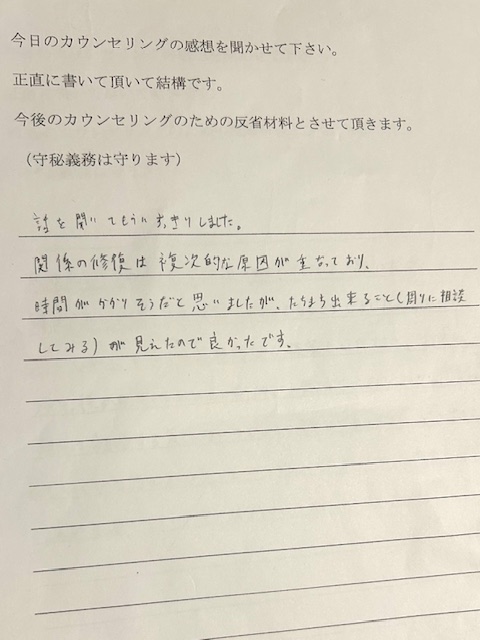 今日のカウンセリングの感想を聞かせて下さい。
正直に書いて頂いて結構です。
今後のカウンセリングのための反省材料とさせて頂きます。
（守秘義務は守ります）
話を聞いてもらいすっきりしました。
関係の修復は複次的な原因が重なっており、
時間がかかりそうだと思いましたが、たちまち出来ること（周りに相談
してみる）が見えたので良かったです。